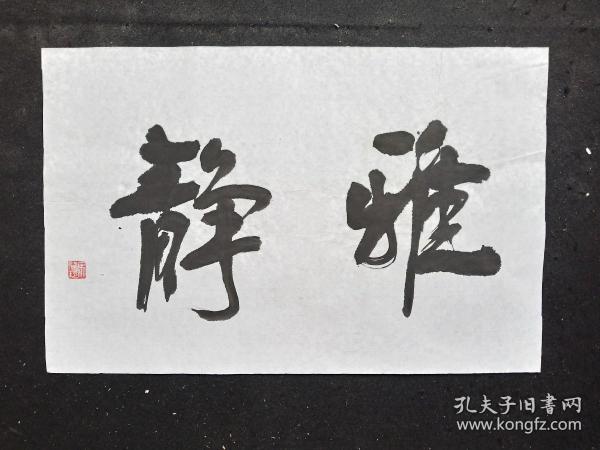 雅静
孔夫子旧書网
www.kongfz.com